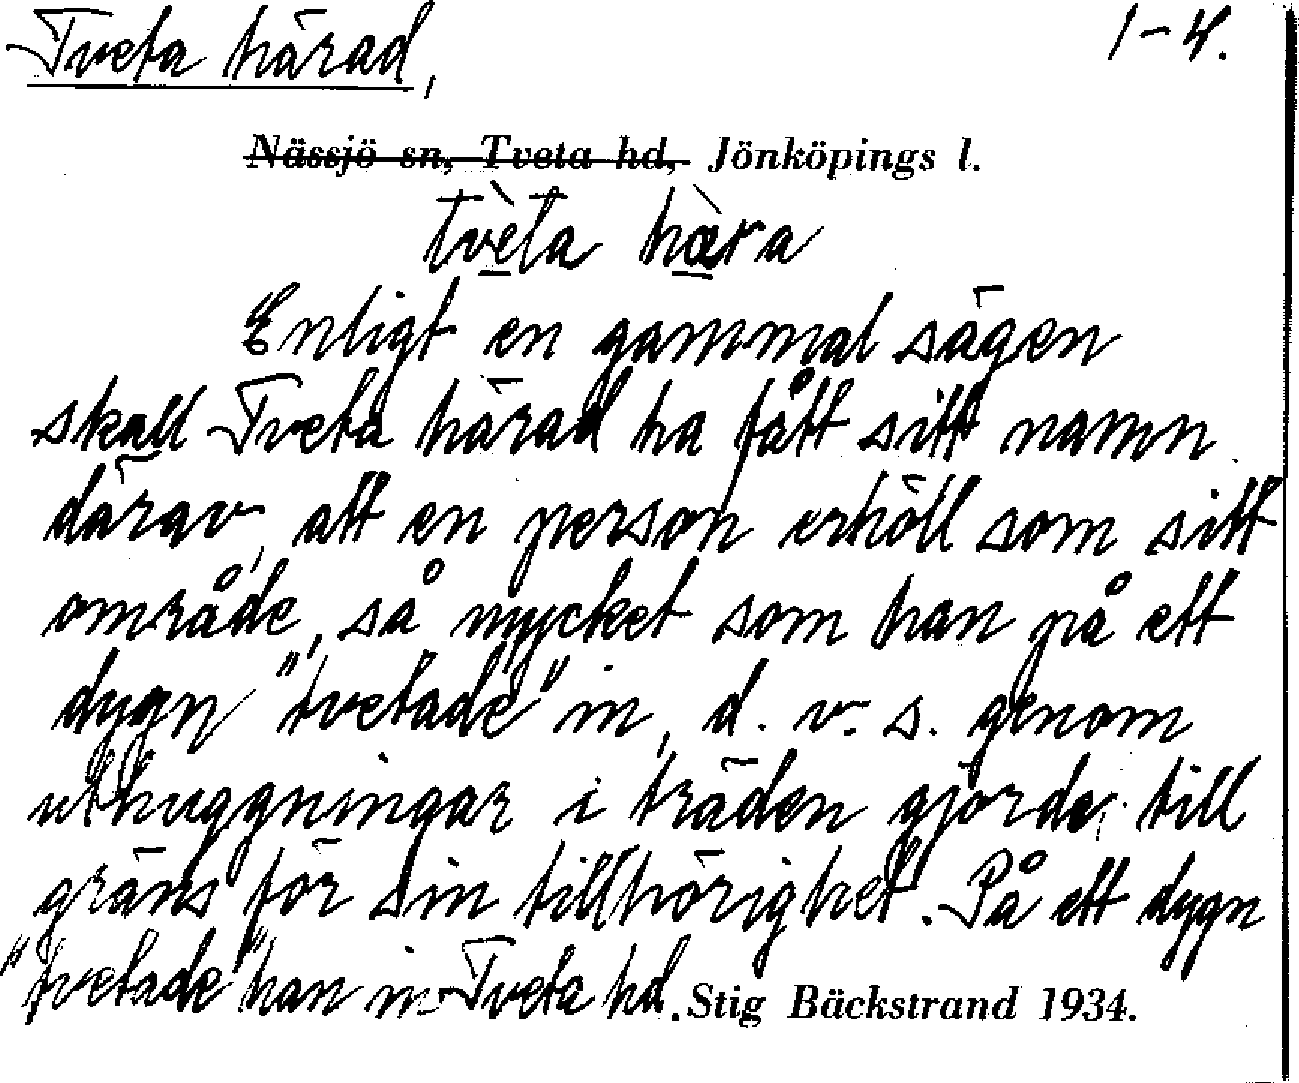 Tveta härad,
1-4.
Nässjö sn, Tveta hd, Jönköpings l.
tvèta hæ̀ra
Enligt en gammal sägen
skall Tveta härad ha fått sitt namn
därav, att en person erhöll som sitt
område, så mycket som han på ett
dygn "tvetade" in, d. v. s. genom
uthuggningar i träden gjorde till
gräns för sin tillhörighet. På ett dygn
"tvetade" han in Tveta hd. Stig Bäckstrand 1934.